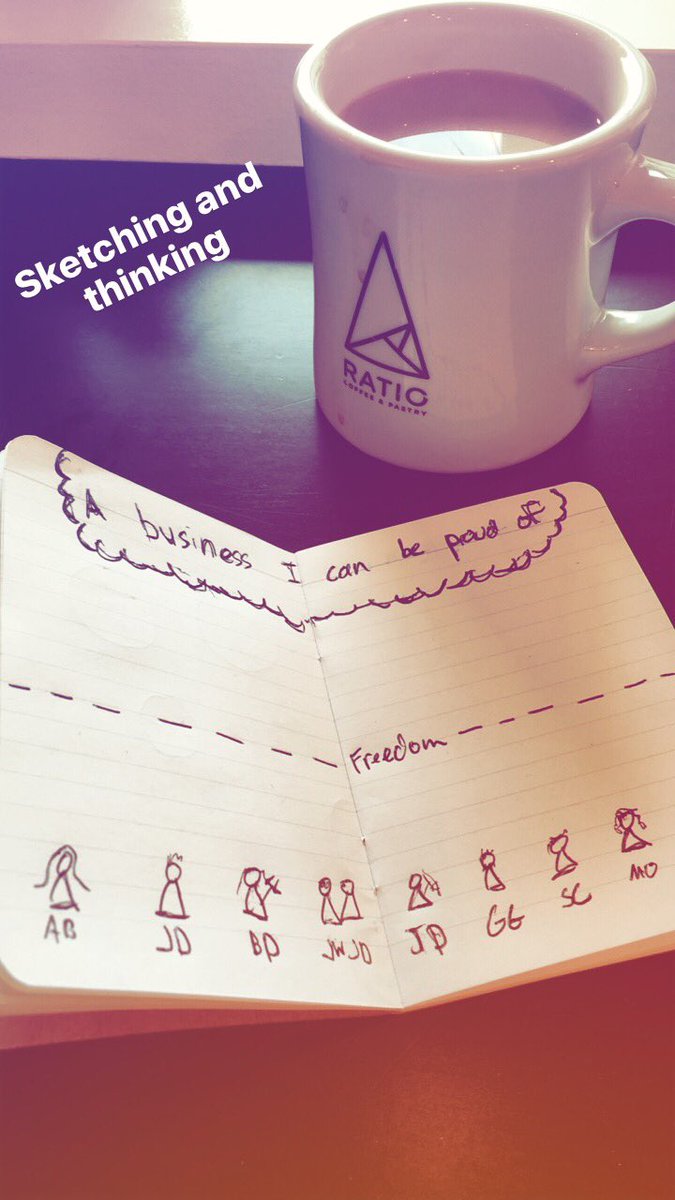 Sketching and
thinking
RATIO
COFFEE & PASTRY
A business I can be proud of
Freedom
AB JD BD JW JD JD GG SC MO